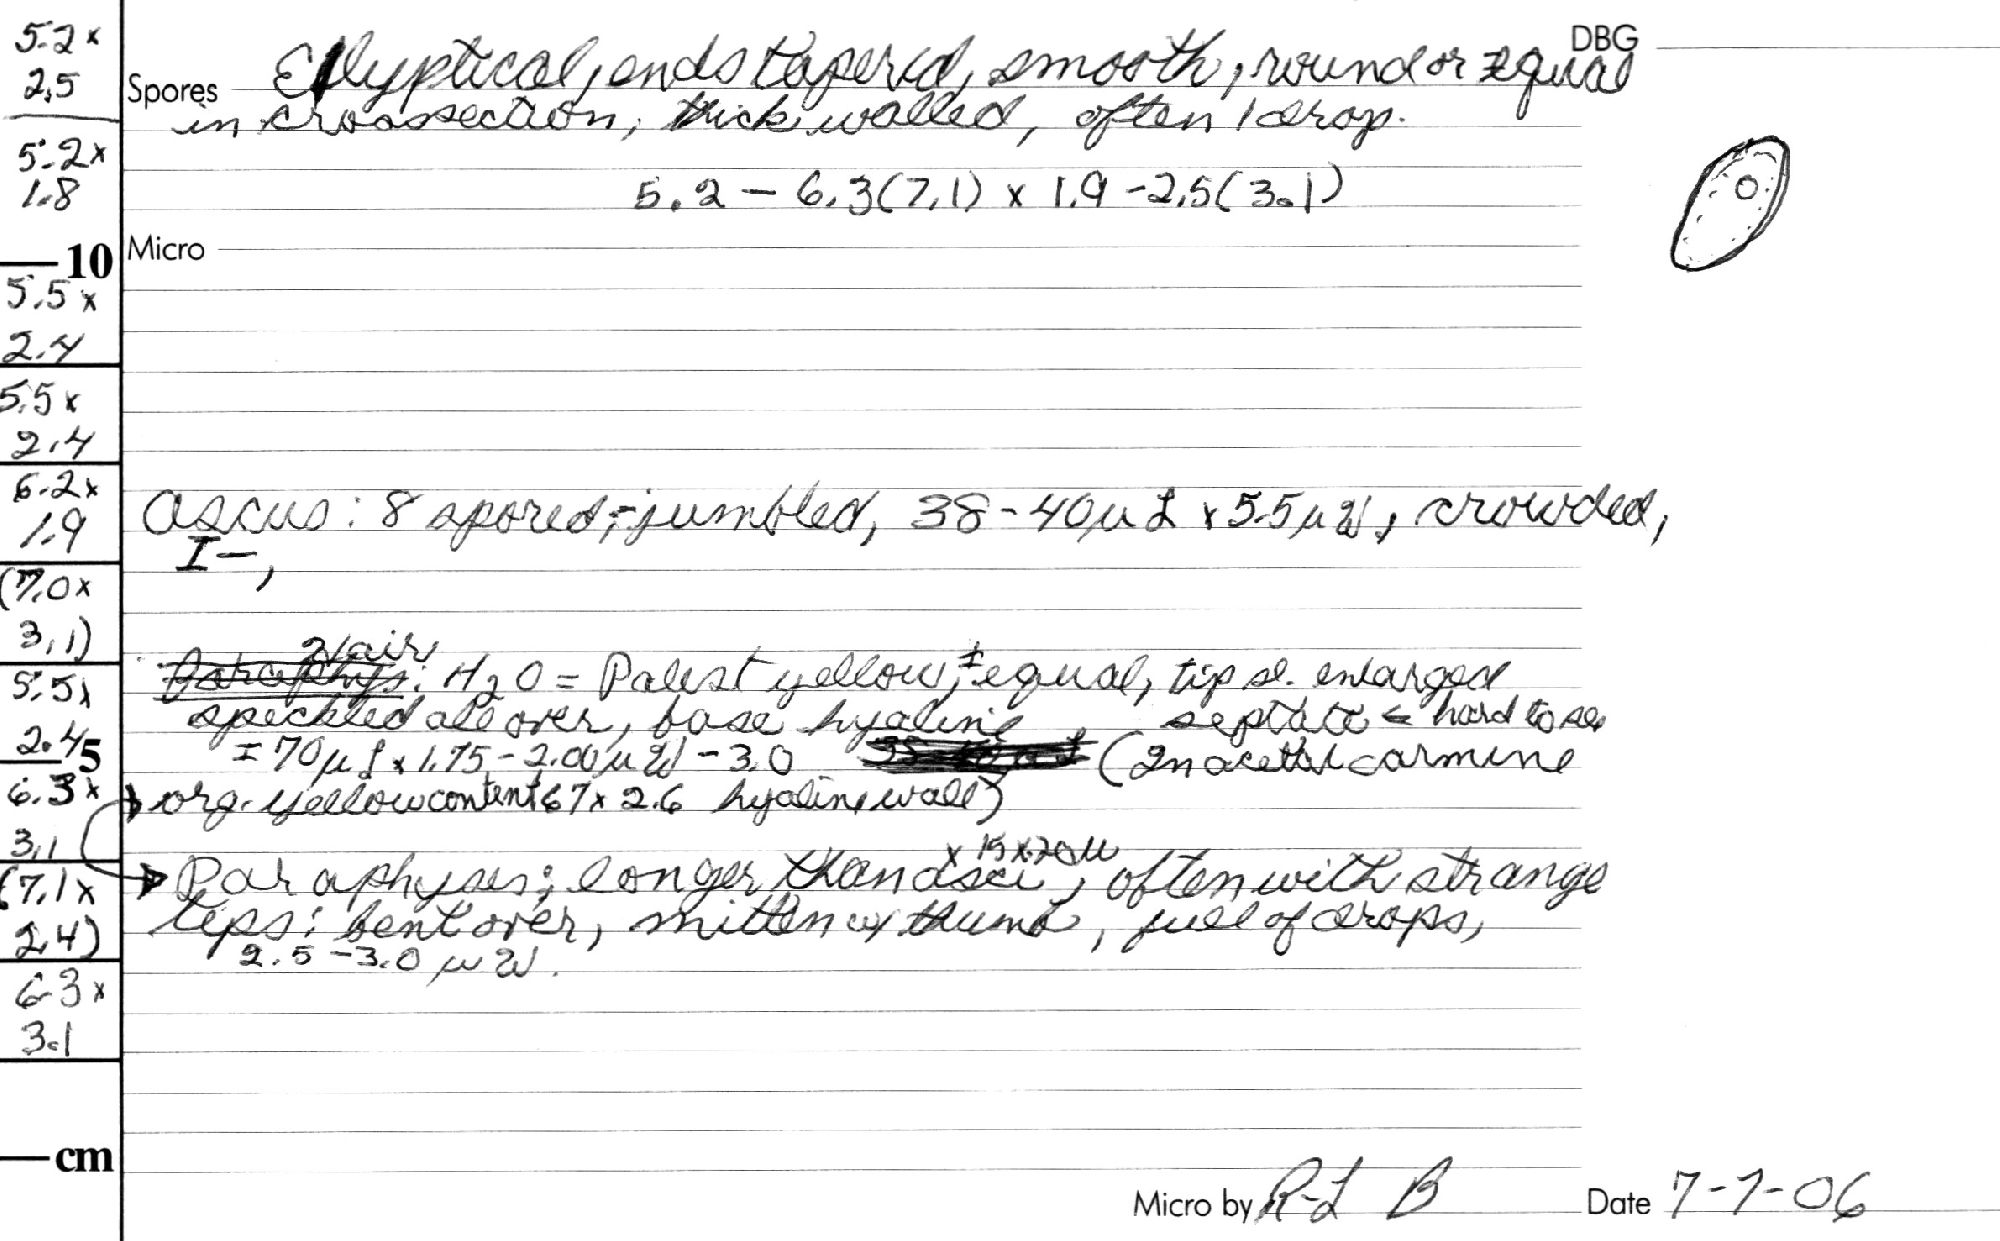 DBG
Spores Ellyptical, ends tapered, smooth, round or equal
in crossection, thick walled, often 1 drop.
5.2 – 6.3(7.1) x 1.9 -2.5(3.1)
Micro
Ascus: 8 spored, jumbled, 38-40µ L x 5.5µ W, crowded,
I–,
Hair
Paraphys: H2O = Palest yellow, ± equal, tip sl. enlarged
speckled all over, base hyaline septate ← hard to see
= 70µ L x 1.75-2.00µ W -3.0 (In aceto carmine
org. yellow content 67 x 2.6 hyaline wall)
x 15 x 20µ
Paraphyses; longer than asci, often with strange
tips: bent over, mitten w/ thumb, full of drops,
2.5 -3.0 µ W.
Micro by R-L B Date 7-7-06
5.2 x
2.5
5.2 x
1.8
10
5.5 x
2.4
5.5 x
2.4
6.2 x
1.9
(7.0 x
3.1)
5.5 x
2.4
5
6.3 x
3.1
(7.1 x
2.4)
6.3 x
3.1
cm